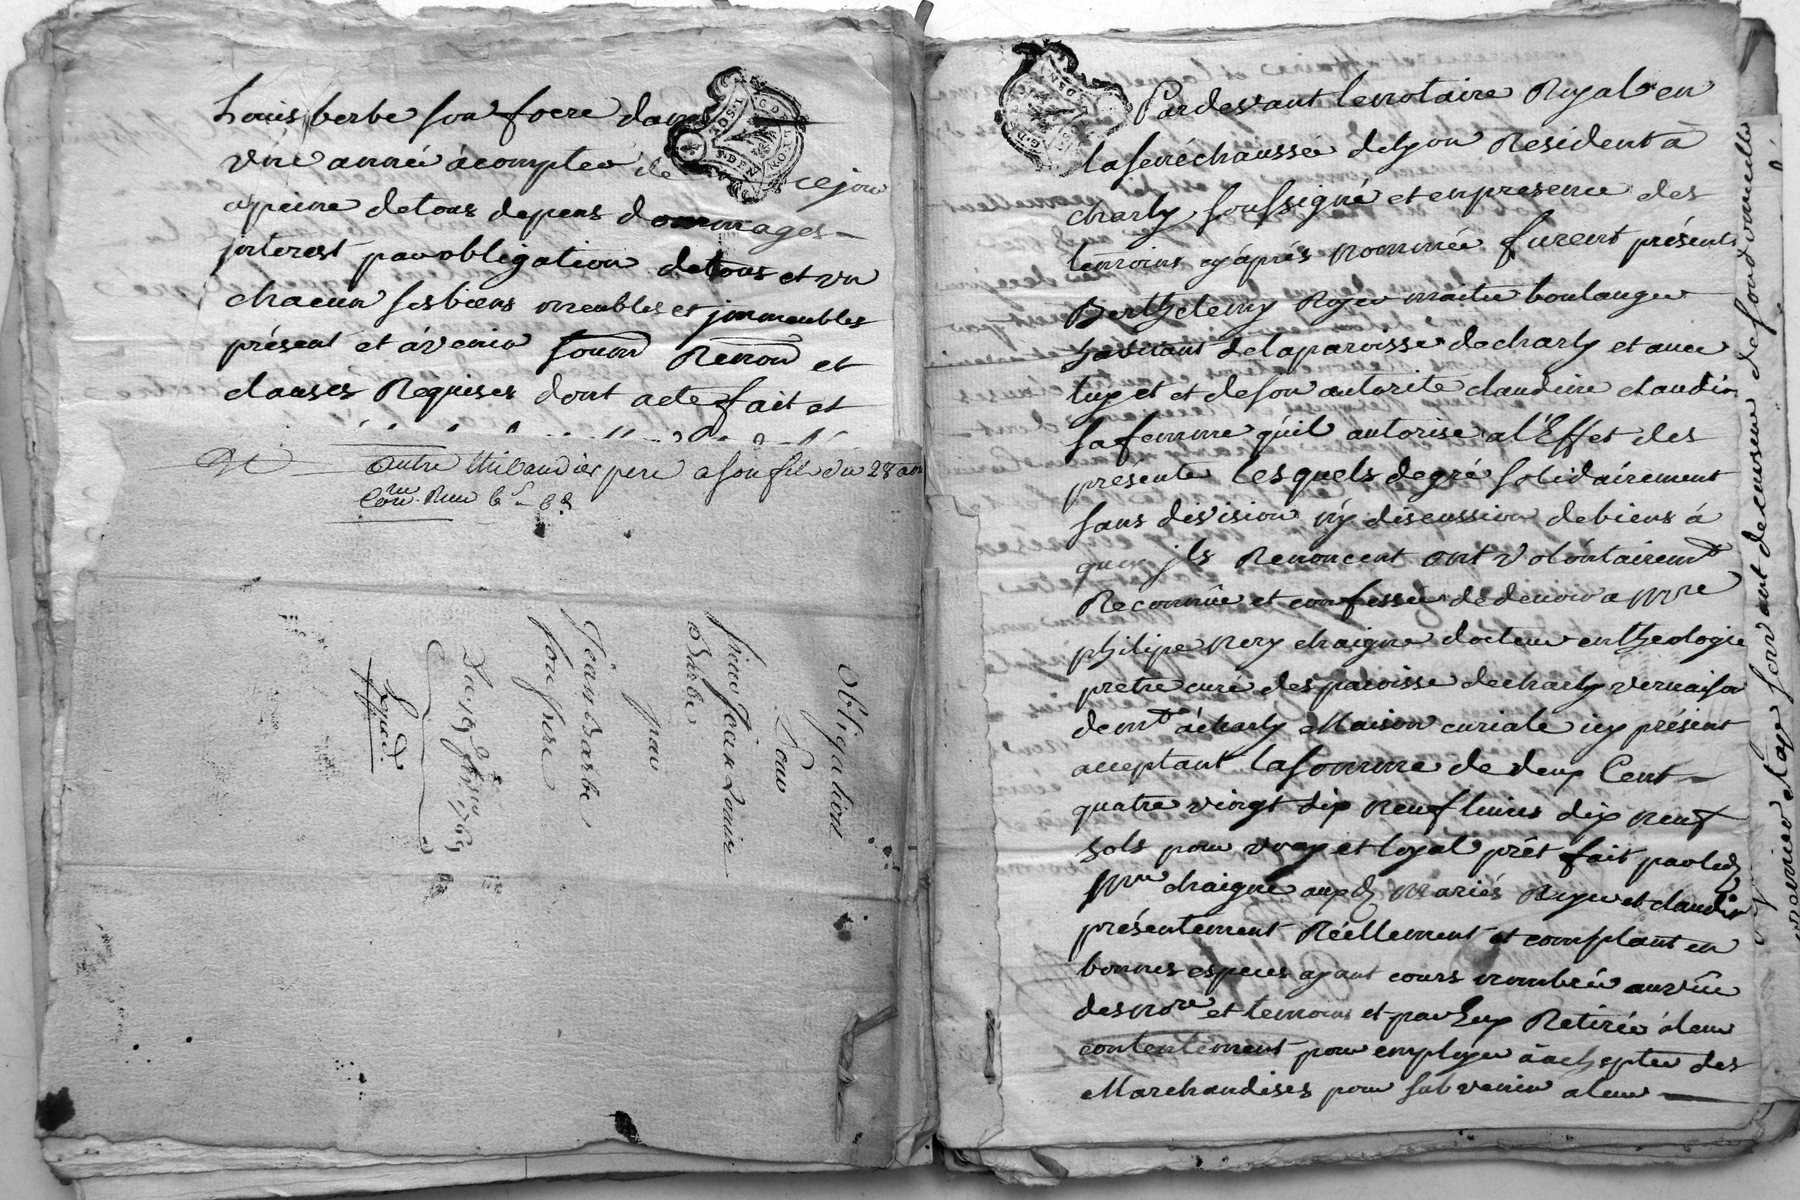 Louis berbe son frere dans
une année à compter de ce jour
a peine detous depens dommages
jnterest par obligation detous et un
chacun ses biens meubles et jmmeubles
présent et àvenir soum Renon et
clauses Requises dont acte fait et
autre thibaudier pere a son fils du 28
Obligation
Pour
sieur Jean Louis
Barbe
par
Jean Barbe
son frere
Du 19 1765
Pardevant le notaire Royal en
la senéchaussée delyon Resident à
charly soussigné et en presence des
temoins cy après nommée furent présents
Berthelemy Royer maitre boulanger
habitant de la paroisse de charly et avec
luy et de son autorité claudine claudin
sa femme qu'il autorise a l'Effet des
presente lesquels de gré solidairement
sans devision ny discussion de biens à
quoy jls Renoncent ont volontairemt
Reconnüe et confessée de devoir a Mre
philipe nery chaigne docteur en theologie
pretre curé des paroisse de charly vernaison
demt à charly Maison curiale icy présent
acceptant la somme de deux Cent
quatre vingt dix neuf livres dix neuf
sols pour vray et loyal prêt fait par led
Mre chaigne auxd mariés Royer et claudin
présentement Réellement et comptant en
bonnes especes ayant cours nombrée au vüe
des nore et temoins et par Eux Retirée à leur
contentement pour employer à achepter des
Marchandises pour subvenir a leur